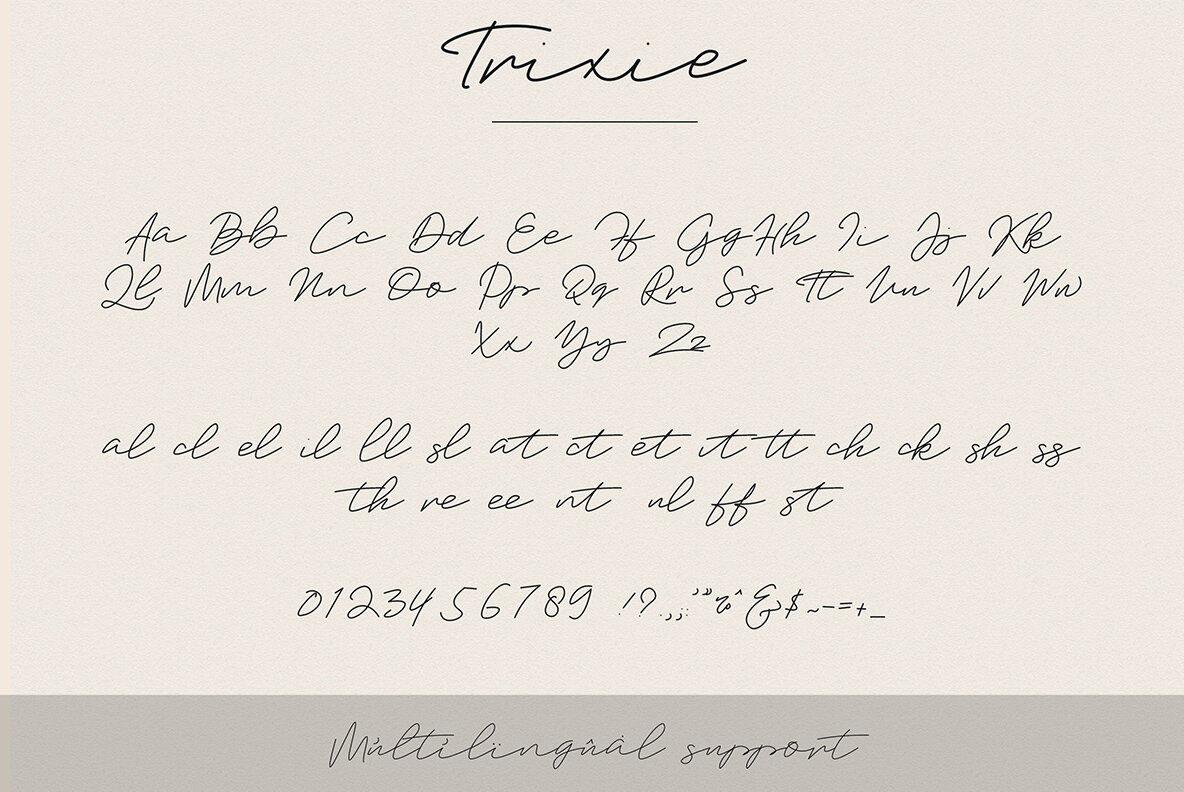 Trixie
Aa Bb Cc Dd Ee Ff Gg Hh Ii Jj Kk
Ll Mm Nn Oo Pp Qq Rr Ss Tt Uu Vv Ww
Xx Yy Zz
al cl el il ll sl at ct et it tt ch ck sh ss
th re ee nt nl ff st
0123456789 !?.,;:'"%^&$~-–=+_
Múltilïngûàl support